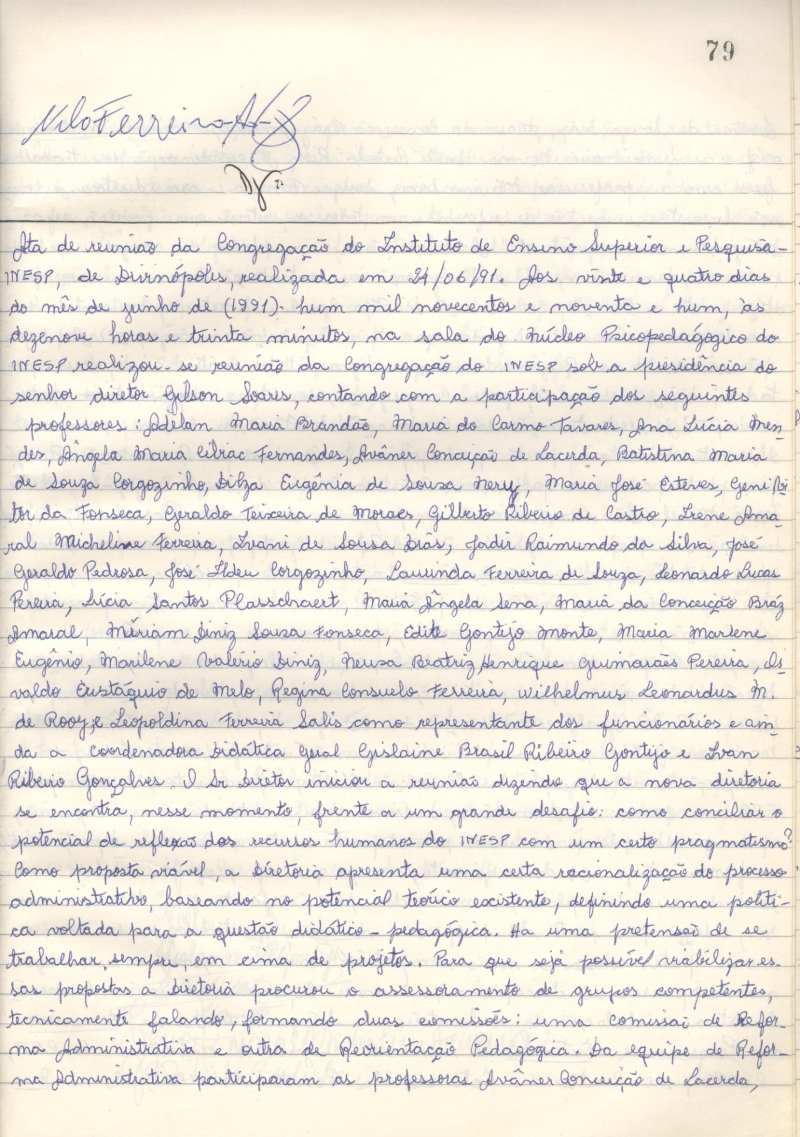 79
Nilo Ferreira
Ata de reunião da Congregação do Instituto de Ensino Superior e Pesquisa -
INESP, de Divinópolis, realizada em 24/06/91. Aos vinte e quatro dias
do mês de junho de (1991) - hum mil novecentos e noventa e hum, às
dezenove horas e trinta minutos, na sala do Núcleo Psicopedagógico do
INESP realizou-se reunião da Congregação do INESP sob a presidência do
senhor diretor Gilson Soares, contando com a participação dos seguintes
professores: Adélan Maria Brandão, Maria do Carmo Tavares, Ana Lúcia Men-
des, Ângela Maria Cibrac Fernandes, Avâner Conceição de Lacerda, Batistina Maria
de Souza Corgozinho, Dilza Eugênia de Sousa Nery, Maria José Esteves, Geni/
tor da Fonseca, Geraldo Teixeira de Moraes, Gilberto Ribeiro de Castro, Irene Ama-
ral Micheline Ferreira, Ivani de Sousa Brás, Jadir Raimundo da Silva, José
Geraldo Pedrosa, José Ildeu Corgozinho, Laurinda Ferreira de Souza, Leonardo Lucas
Pereira, Lúcia Santos Plasschaert, Maria Ângela Sena, Maria da Conceição Bráz
Amaral, Míriam Diniz Souza Fonseca, Edite Gontijo Monte, Maria Marlene
Eugênio, Marilene Valério Diniz, Neusa Beatriz Henrique Guimarães Pereira, Os-
valdo Eustáquio de Melo, Regina Consuelo Ferreira, Wilhelmus Leonardus M.
de Rooy, e Leopoldina Ferreira Salis como representante dos funcionários e ain-
da a coordenadora Didática Geral Gislaine Brasil Ribeiro Gontijo e Ivan
Ribeiro Gonçalves. O Sr Diretor iniciou a reunião dizendo que a nova diretoria
se encontra, nesse momento, frente a um grande desafio: como conciliar o
potencial de reflexão dos recursos humanos do INESP com um certo pragmatismo?
Como proposta viável, a Diretoria apresenta uma certa racionalização do processo
administrativo, baseando no potencial teórico existente, definindo uma políti-
ca voltada para a questão didático-pedagógica. Ha uma pretensão de se
trabalhar, sempre, em cima de projetos. Para que seja possível viabilizar es-
sas propostas a Diretoria procurou o assessoramento de grupos competentes,
tecnicamente falando, formando duas comissões: uma comissão de Refor-
ma Administrativa e outra de Reorientação Pedagógica. Da equipe de Refor-
ma Administrativa participaram as professoras Avâner Conceição de Lacerda,